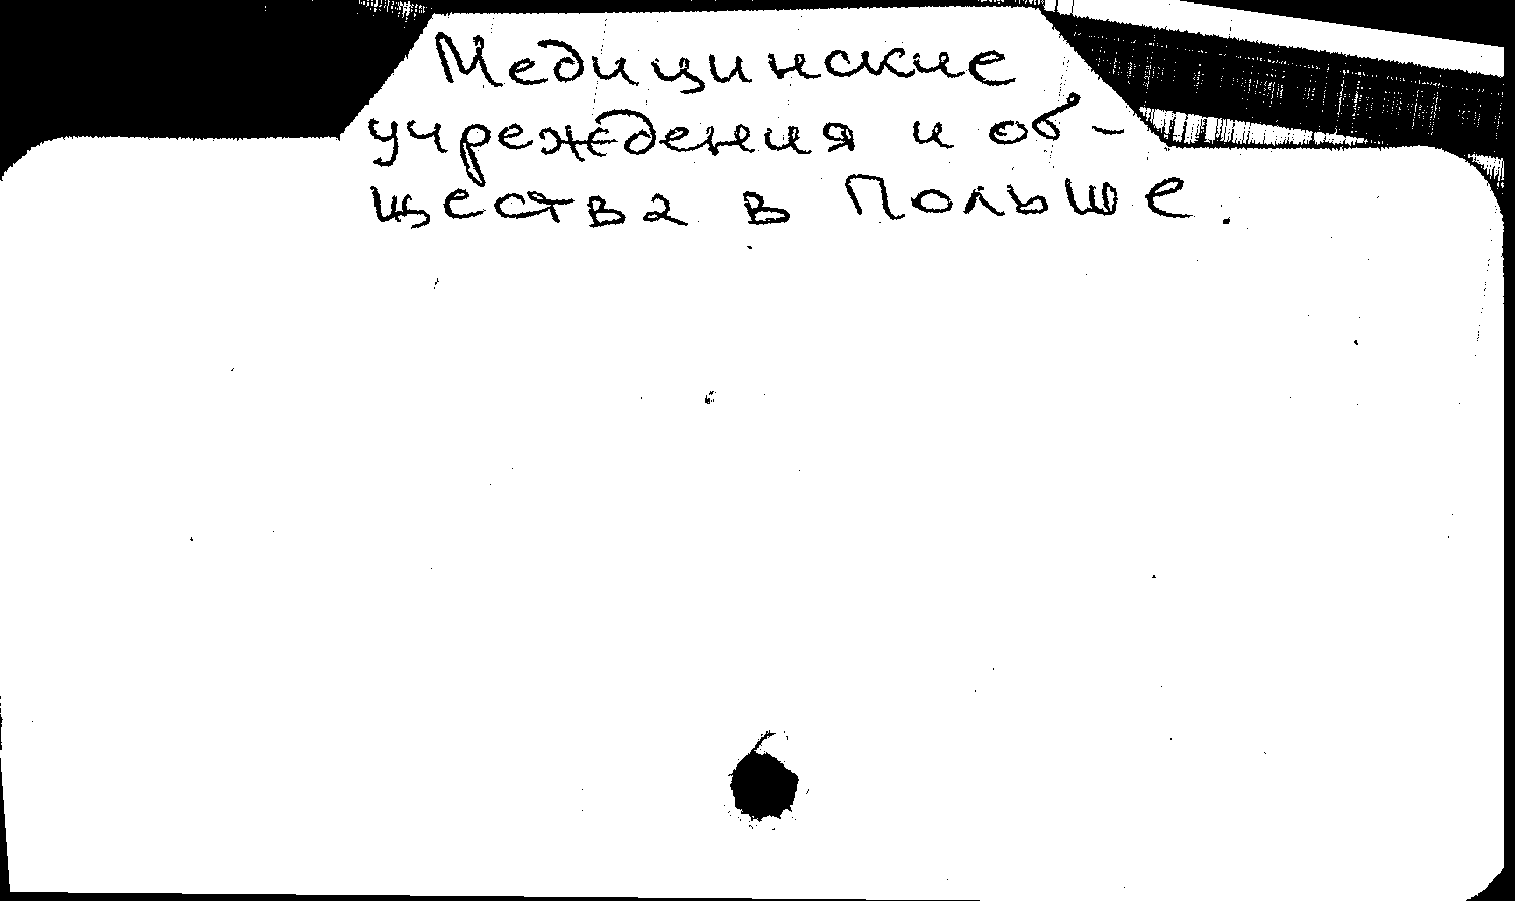 Медицинские
учреждения и об-
щества в Польше.